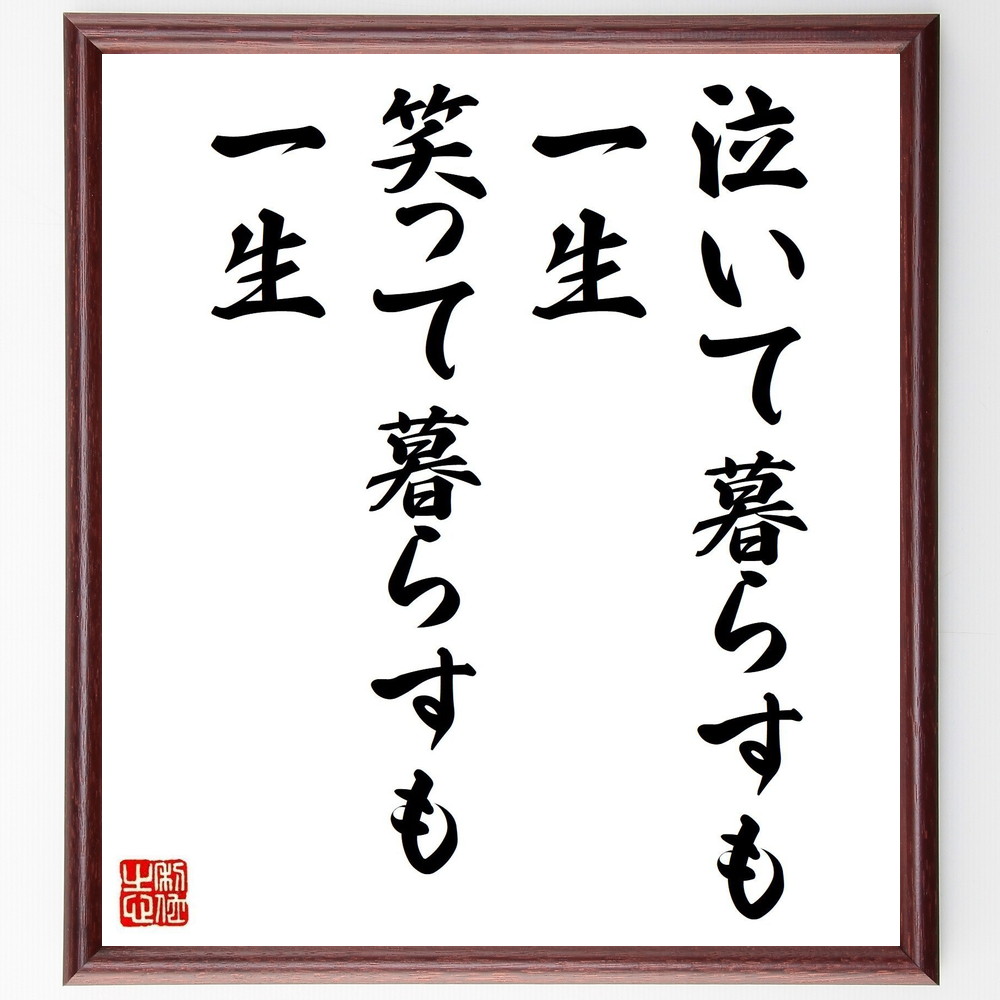 泣いて暮らすも
一生
笑って暮らすも
一生